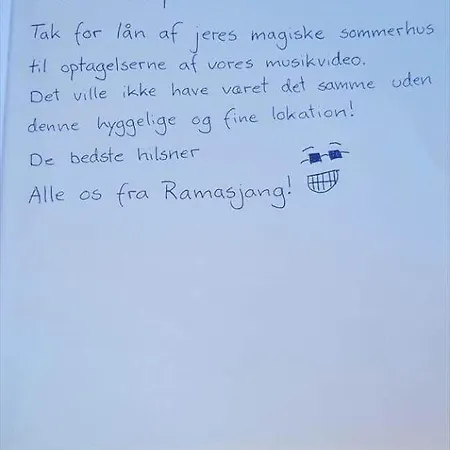 Tak for lån af jeres magiske sommerhus
til optagelserne af vores musikvideo.
Det ville ikke have været det samme uden
denne hyggelige og fine lokation!
De bedste hilsner
Alle os fra Ramasjang!